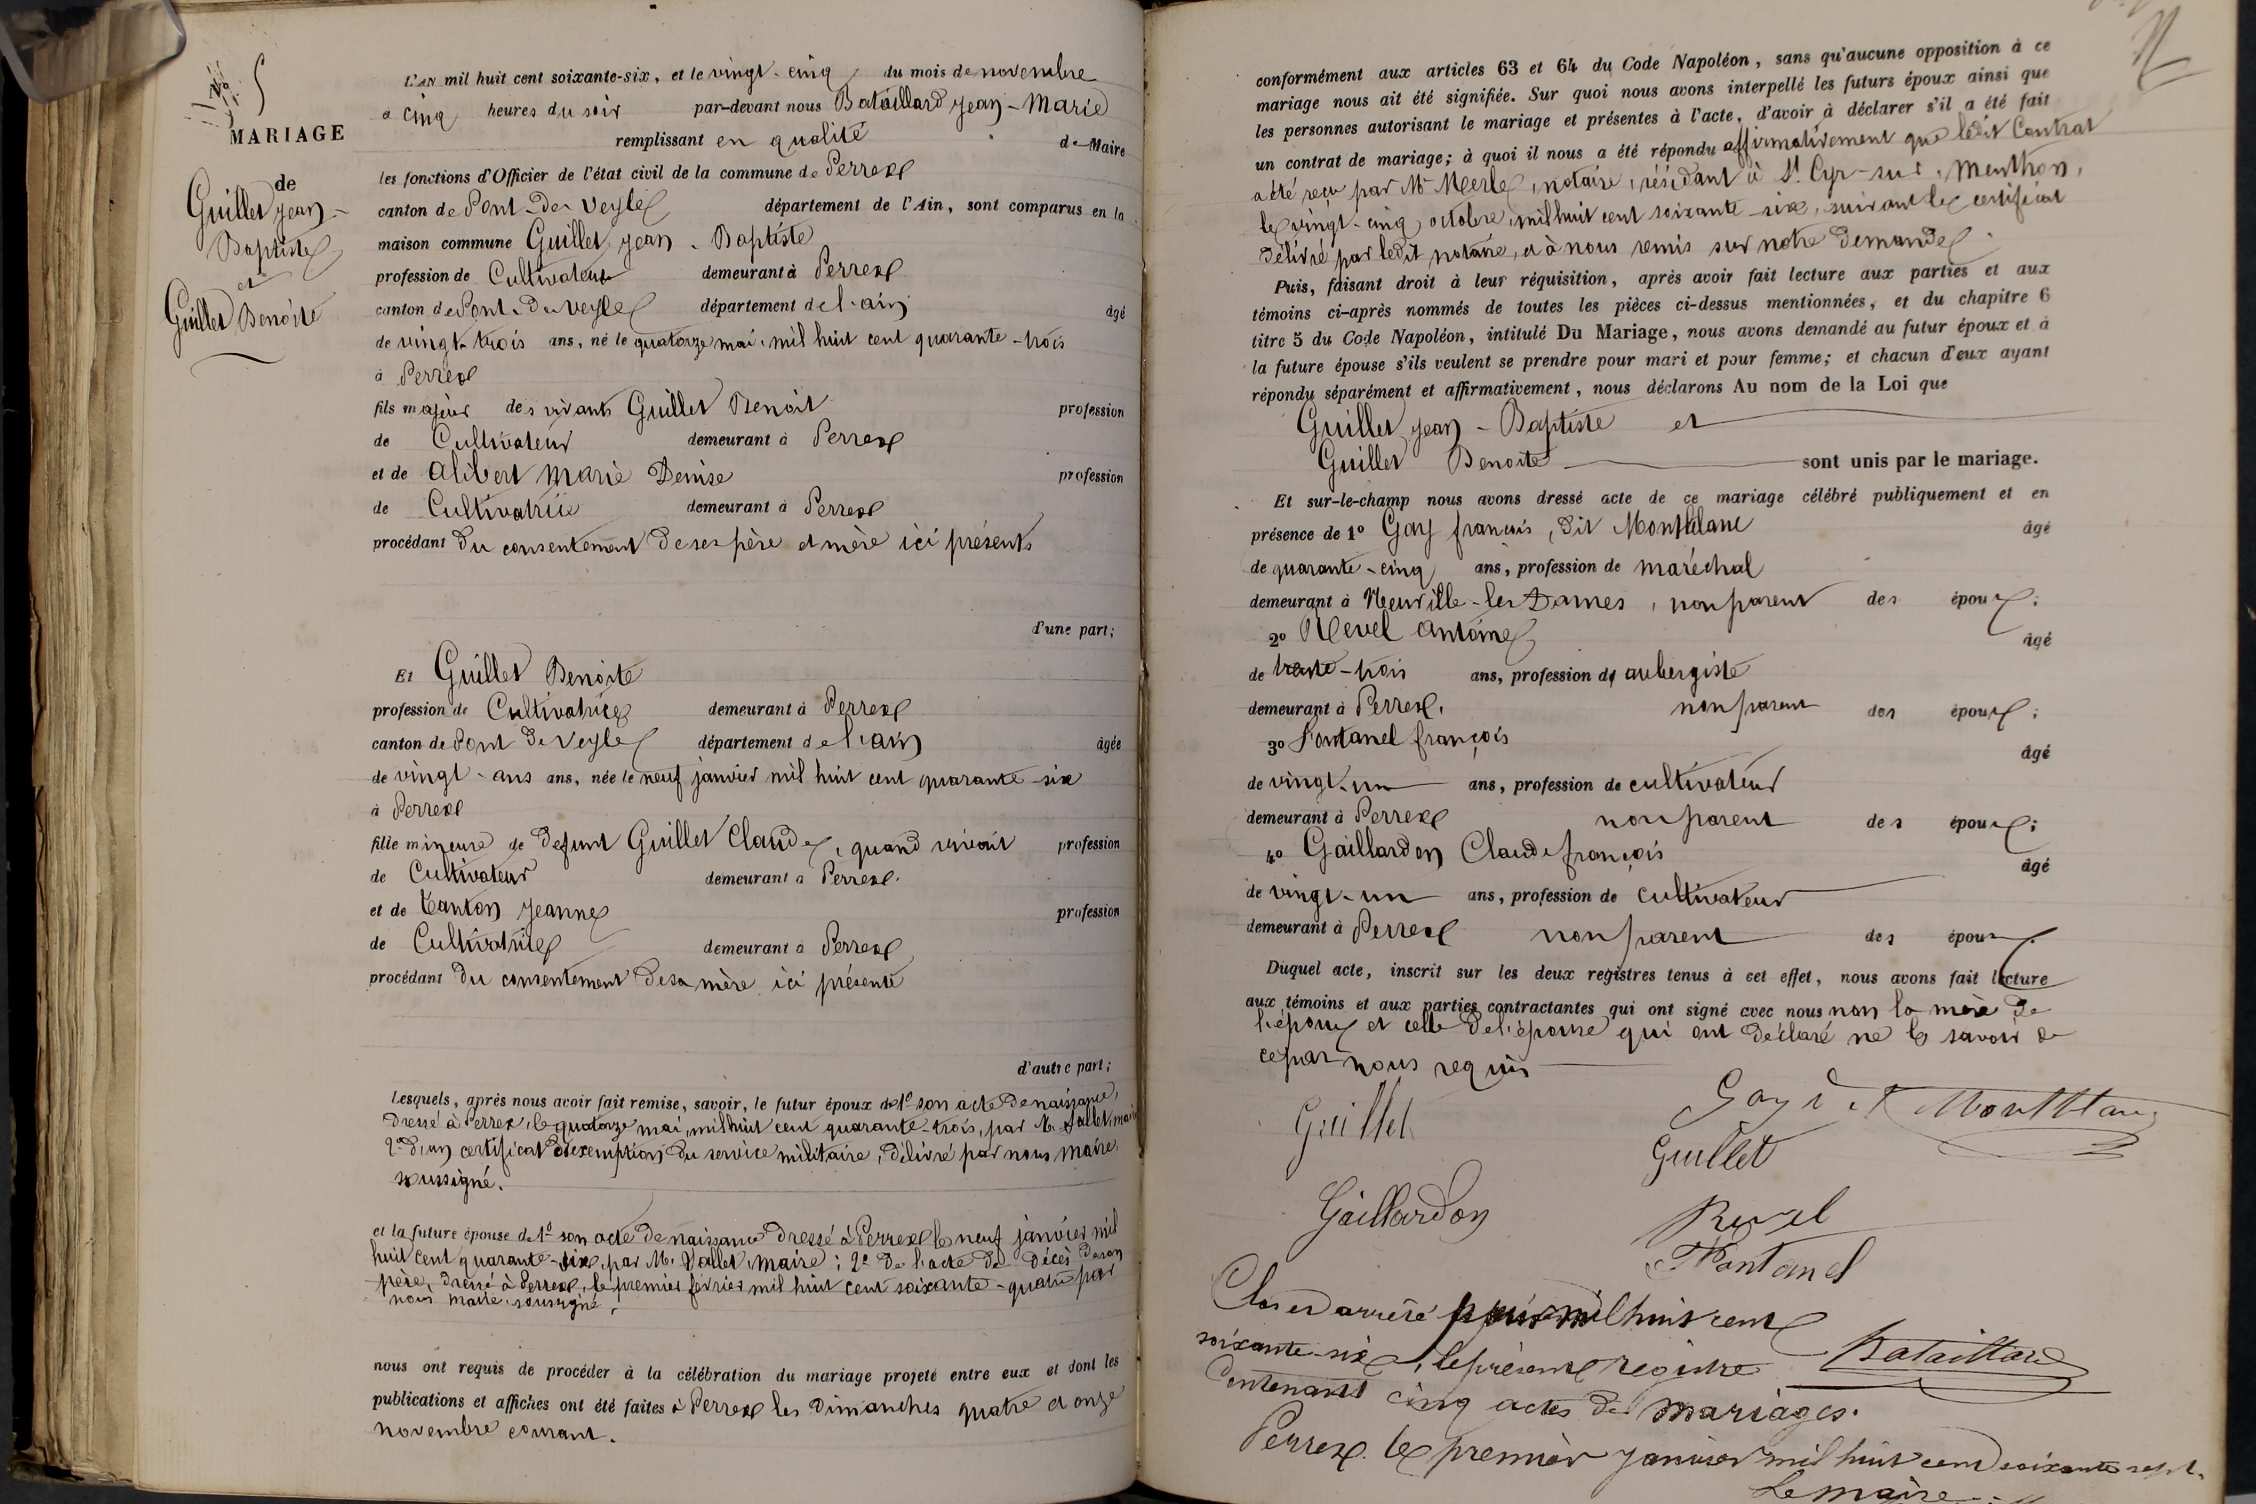 N° 5
MARIAGE
de
Guillet jean-
Baptiste
et
Guillet Benoite
L'AN mil huit cent soixante-six, et le vingt-cinq du mois de novembre
à cinq heures du soir par-devant nous Bataillard jean-Marie
remplissant en qualité de Maire
les fonctions d'Officier de l'état civil de la commune de Perrex
canton de Pont-de-Veyle département de l'Ain, sont comparus en la
maison commune Guillet jean-Baptiste
profession de Cultivateur demeurant à Perrex
canton de Pont-de-Veyle département de l'ain âgé
de vingt-trois ans, né le quatorze mai, mil huit cent quarante-trois
à Perrex
fils majeur des vivants Guillet Benoit profession
de Cultivateur demeurant à Perrex
et de alibert marie Denise profession
de Cultivatrice demeurant à Perrex
procédant du consentement de ses père et mère ici présents
d'une part;
Et Guillet Benoite
profession de Cultivatrice demeurant à Perrex
canton de Pont de Veyle département de l'ain âgée
de vingt-ans ans, née le neuf janvier mil huit cent quarante-six
à Perrex
fille mineure de defunt Guillet Claude, quand vivait profession
de Cultivateur demeurant à Perrex.
et de Tanton jeanne profession
de Cultivatrice demeurant à Perrex
procédant du consentement de sa mère ici présente
d'autre part;
Lesquels, après nous avoir fait remise, savoir, le futur époux de 1° son acte de naissance,
dressé à Perrex, le quatorze mai, mil huit cent quarante-trois, par M. Vallet, maire
2° d'un certificat d'exemption du service militaire, délivré par nous maire
soussigné.
et la future épouse de 1° son acte de naissance dressé à Perrex le neuf janvier mil
huit cent quarante-six, par M. Vallet, maire; 2° de l'acte de décès de son
père, dressé à Perrex, le premier février mil huit cent soixante-quatre par
nous maire soussigné.
nous ont requis de procéder à la célébration du mariage projeté entre eux et dont les
publications et affiches ont été faites à Perrex les Dimanches quatre et onze
novembre courant.
conformément aux articles 63 et 64 du Code Napoléon, sans qu'aucune opposition à ce
mariage nous ait été signifiée. Sur quoi nous avons interpellé les futurs époux ainsi que
les personnes autorisant le mariage et présentes à l'acte, d'avoir à déclarer s'il a été fait
un contrat de mariage; à quoi il nous a été répondu affirmativement que ledit Contrat
a été reçu par Mr Merle, notaire, résidant à St Cyr-sur-Menthon,
le vingt-cinq octobre, mil huit cent soixante-six, suivant le certificat
délivré par ledit notaire, et à nous remis sur notre demande.
Puis, faisant droit à leur réquisition, après avoir fait lecture aux parties et aux
témoins ci-après nommés de toutes les pièces ci-dessus mentionnées, et du chapitre 6
titre 5 du Code Napoléon, intitulé Du Mariage, nous avons demandé au futur époux et à
la future épouse s'ils veulent se prendre pour mari et pour femme; et chacun d'eux ayant
répondu séparément et affirmativement, nous déclarons Au nom de la Loi que
Guillet jean-Baptiste et
Guillet Benoite sont unis par le mariage.
Et sur-le-champ nous avons dressé acte de ce mariage célébré publiquement et en
présence de 1° Gay françois, dit Montblanc âgé
de quarante-cinq ans, profession de maréchal
demeurant à Neuville-les-Dames, non parent des époux;
2° Revel antoine âgé
de trente-trois ans, profession de aubergiste
demeurant à Perrex. non parent des époux;
3° Fontanel françois âgé
de vingt-un ans, profession de cultivateur
demeurant à Perrex non parent des époux;
4° Gaillardon Claude françois âgé
de vingt-un ans, profession de cultivateur
demeurant à Perrex non parent des époux.
Duquel acte, inscrit sur les deux registres tenus à cet effet, nous avons fait lecture
aux témoins et aux parties contractantes qui ont signé avec nous non la mère de
l'époux et celle de l'épouse qui ont déclaré ne le savoir de
ce par nous requis
Guillet Gay dit Montblanc
Guillet
Gaillardon Revel
Fontanel
Clos et arrêté pour mil huit cent
soixante-six, le présent registre Bataillard
Contenant cinq actes de mariages.
Perrex le premier janvier mil huit cent soixante sept.
Le maire